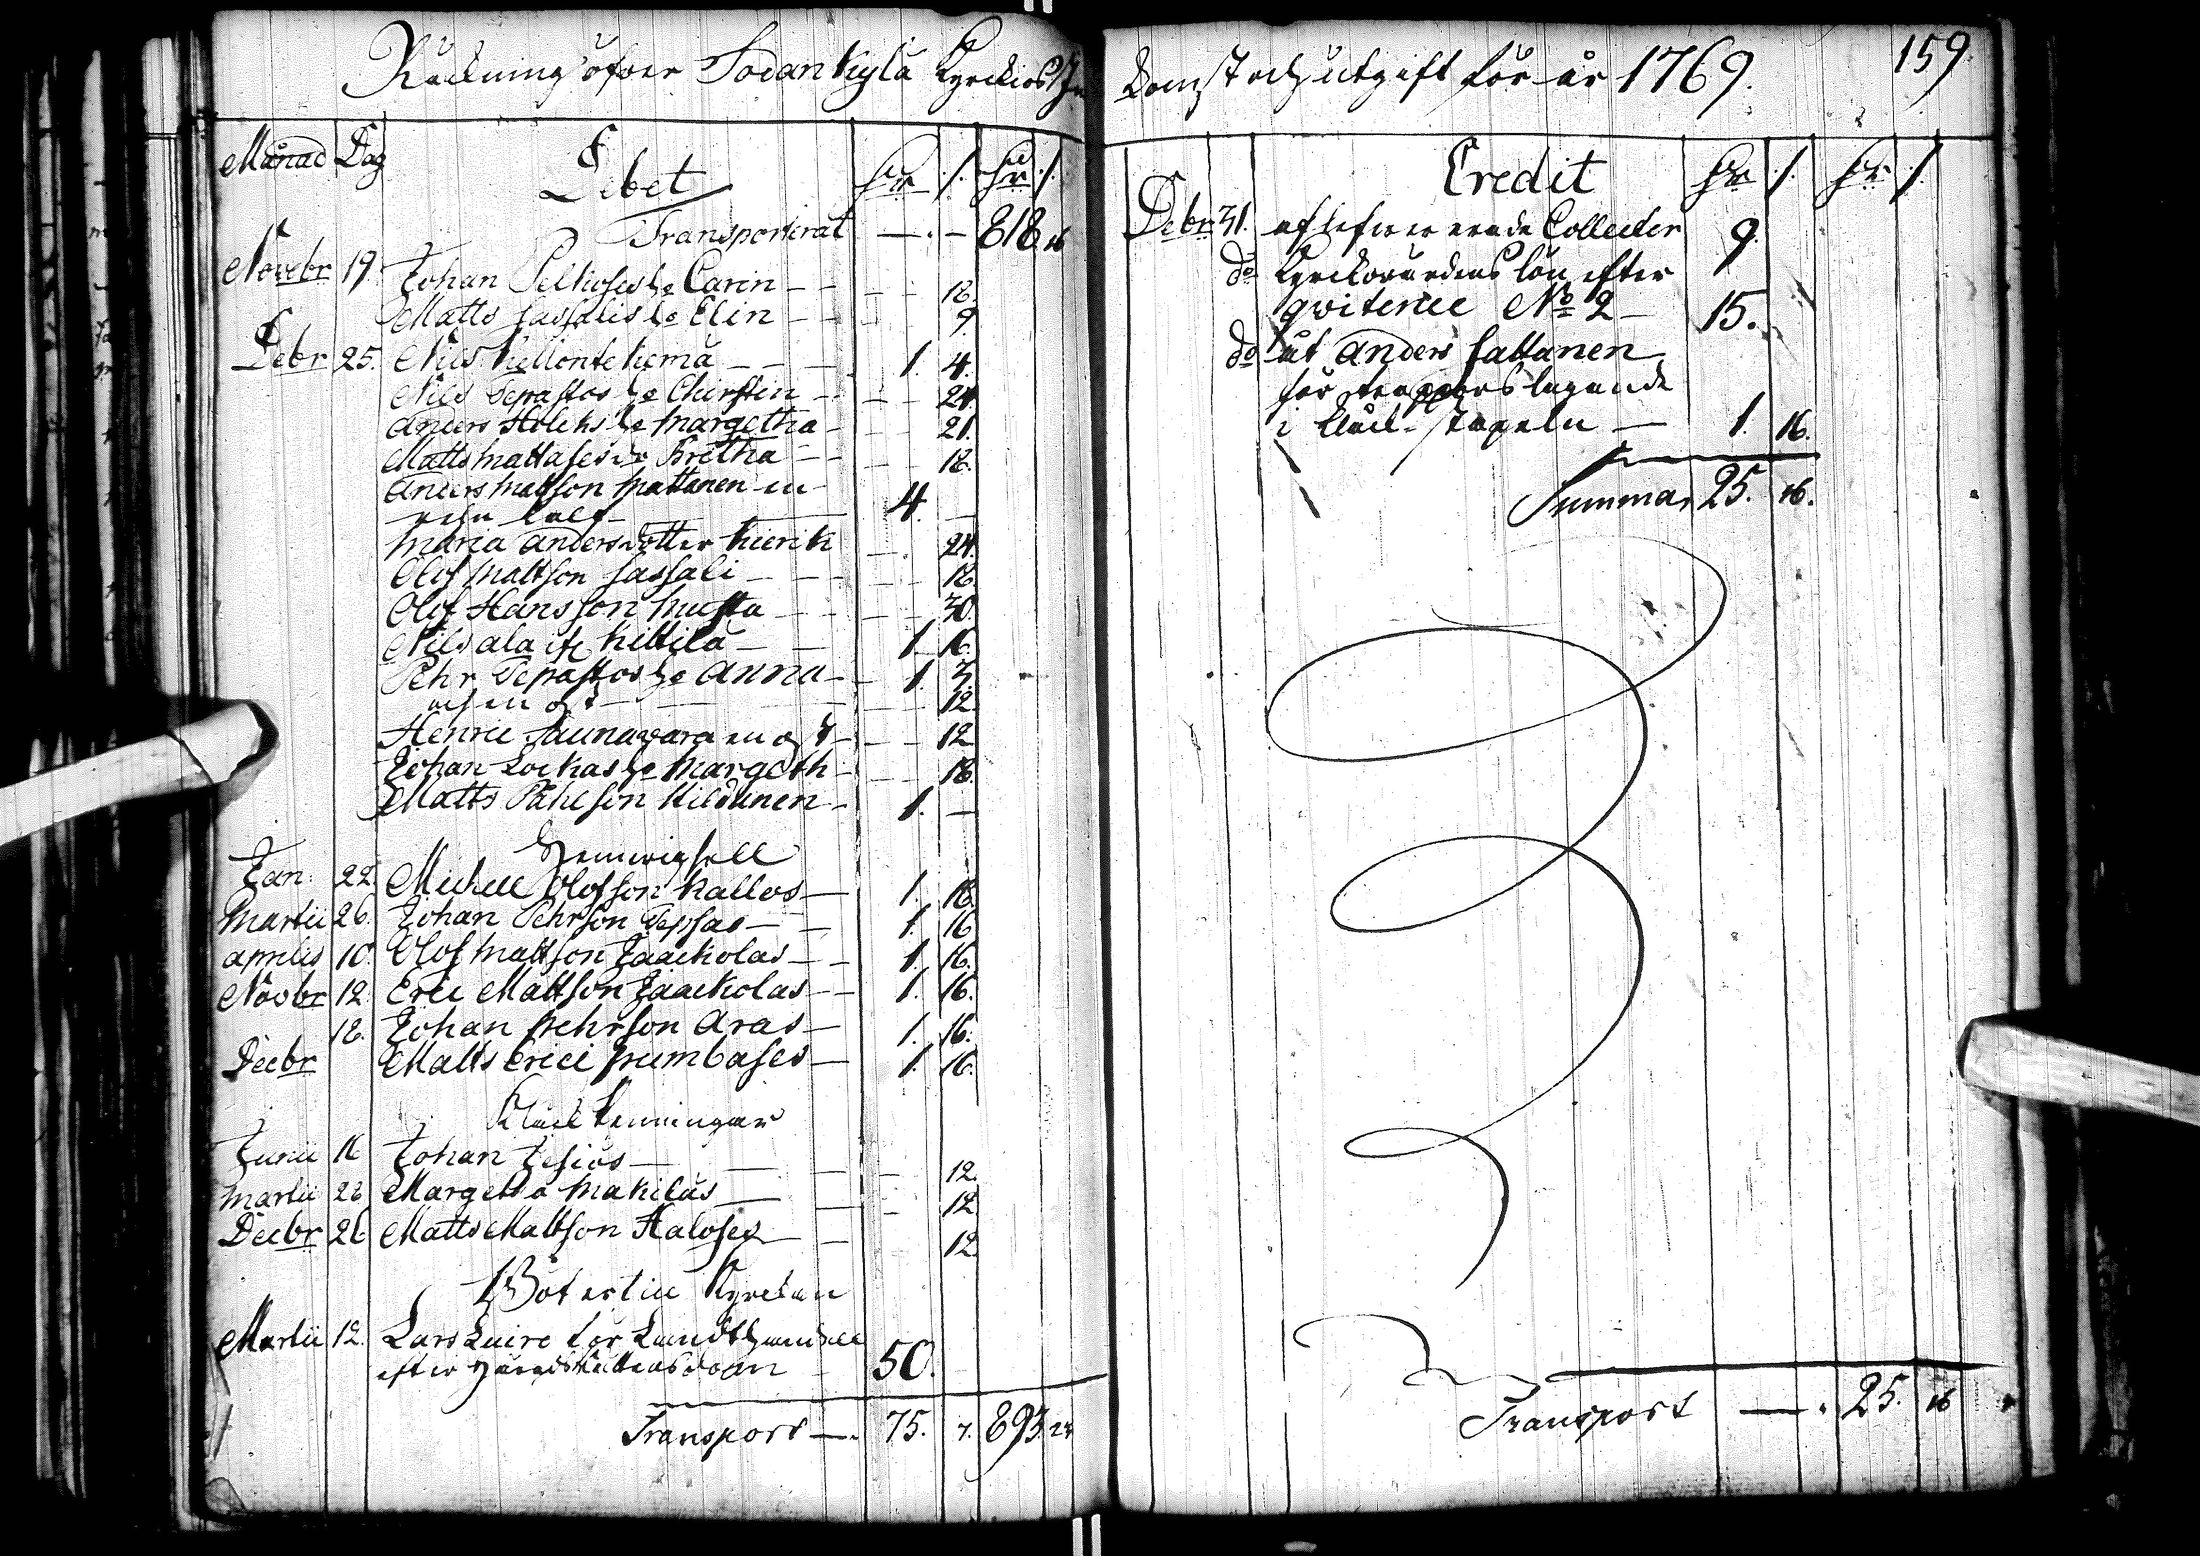 Räckning öfver Sodankylä Kyrckios In
komst och utgift för år 1769.
159.
Månad Dag Debet
Transporterat — . — 818. 16
Novebr 19. Johan Pelkoses he Carin — — 18.
Matts Sassalis he Elin — — 9.
Debr 25. Nils Kellontekemä — — 1. 4.
Nils Tepastos he Chirstin — — 24.
Anders Holcks he Margetha — 21.
Matts Mattases dr Bretha — — 18.
Anders Mattson Mattanen en
rehn kalf — 4. —
Maria Andersdotter Kierik — 24.
Olof Mattson Sassali — — 18.
Olof Hansson Musta — — 30.
Nils ala af Kittilä — — 1. 16.
Pehr Tepastos he Anna — 1. 3.
och en ost — — 12.
Henric Saunavara en ost — 12
Johan Lockas he Margeth — 18.
Matts Påhlson Kildunen — 1. —
Hemvigsell
Jan: 22. Michell Olofson Kallos — 1. 16.
Martii 26. Johan Pehrson Tepsas — 1. 16
Aprilis 10. Olof Mattson Jaackolas — 1. 16.
Növbr 12. Eric Mattson Jaackolas — 1. 16.
18. Johan Pehrson Aras — 1. 16.
Decbr Matts Erici Pumbases — 1. 16.
Kläck Ränningar
Junii 16 Johan Jesiös — 12.
Martii 28 Margetha Makiläs — 12
Decbr 26 Matts Mattson Haloses — 12.
Böter till Kyrckan
Martii 12. Lars Lairo för Landthandell
efter Häradsrättens dom — 50.
Transport — . 75. 7. 893. 23
Credit
Debr 31. aflefvererade Collecter 9.
do Kyrckovärdens lön efter
qvitence No 2 — 15.
do åt Anders Sattanen
för trappors lagande
i Kläck-stapeln — 1. 16.
Summa, 25. 16.
Transport — . 25. 16